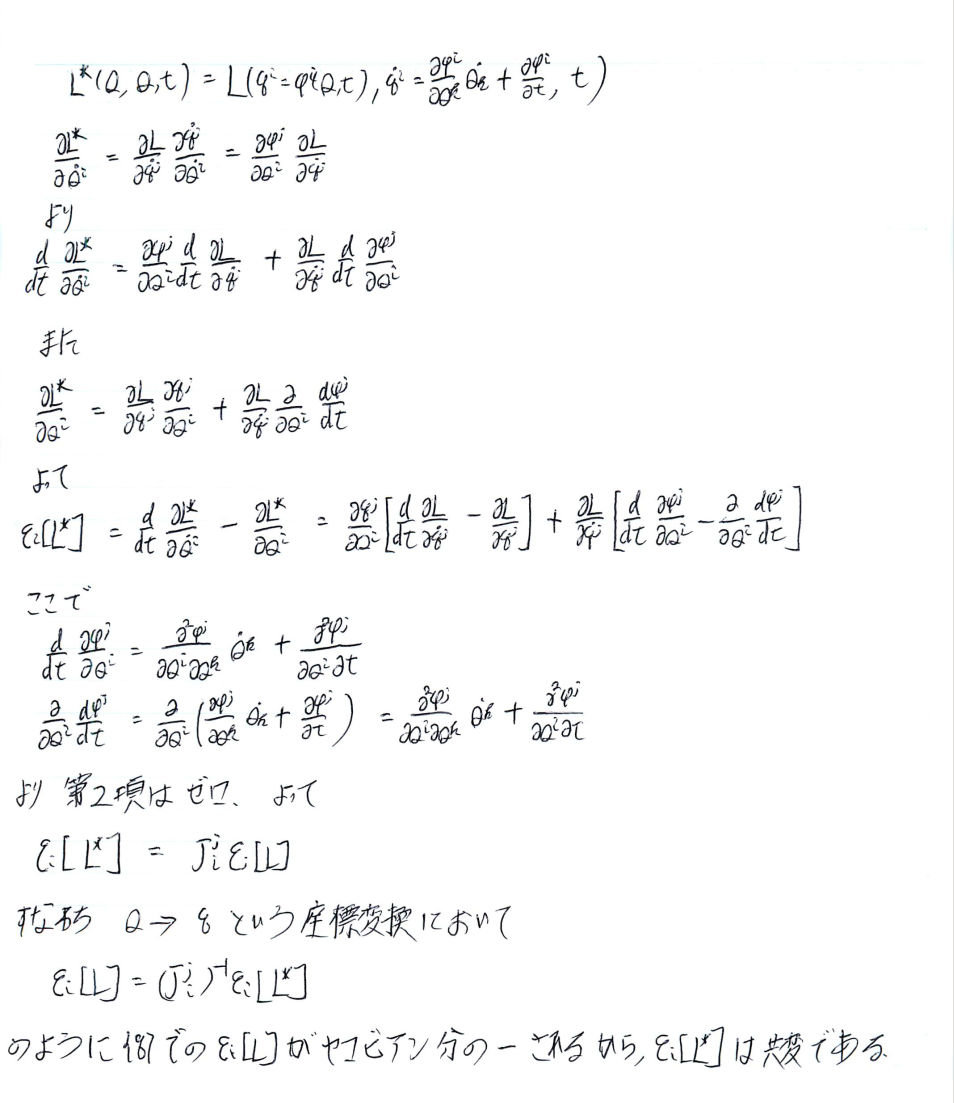 L*(Q, Q̇, t) = L(q^i = φ^i(Q,t), q̇^i = ∂φ^i/∂Q^k Q̇k + ∂φ^i/∂t, t)
∂L*/∂Q̇^i = ∂L/∂q̇^j ∂q̇^j/∂Q̇^i = ∂φ^j/∂Q^i ∂L/∂q̇^j
より
d/dt ∂L*/∂Q̇^i = ∂φ^j/∂Q^i d/dt ∂L/∂q̇^j + ∂L/∂q̇^j d/dt ∂φ^j/∂Q^i
また
∂L*/∂Q^i = ∂L/∂q^j ∂q^j/∂Q^i + ∂L/∂q̇^j ∂/∂Q^i dφ^j/dt
よって
ε_i[L*] = d/dt ∂L*/∂Q̇^i − ∂L*/∂Q^i = ∂q^j/∂Q^i [d/dt ∂L/∂q̇^j − ∂L/∂q^j] + ∂L/∂q̇^j [d/dt ∂φ^j/∂Q^i − ∂/∂Q^i dφ^j/dt]
ここで
d/dt ∂φ^j/∂Q^i = ∂²φ^j/∂Q^i∂Q^k Q̇k + ∂²φ^j/∂Q^i∂t
∂/∂Q^i dφ^j/dt = ∂/∂Q^i (∂φ^j/∂Q^k Q̇k + ∂φ^j/∂t) = ∂²φ^j/∂Q^i∂Q^k Q̇^k + ∂²φ^j/∂Q^i∂t
より 第2項はゼロ、よって
ε_i[L*] = J^j_i ε[L]
すなわち Q → q という座標変換において
ε_i[L] = (J^j_i)^-1 ε_i[L*]
のように {q} での ε_i[L] がヤコビアン分の一されるから, ε_i[L*] は共変である.